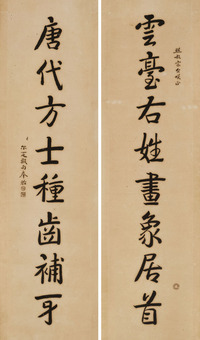 雲臺右姓畫象居首
唐代方士種齒補牙